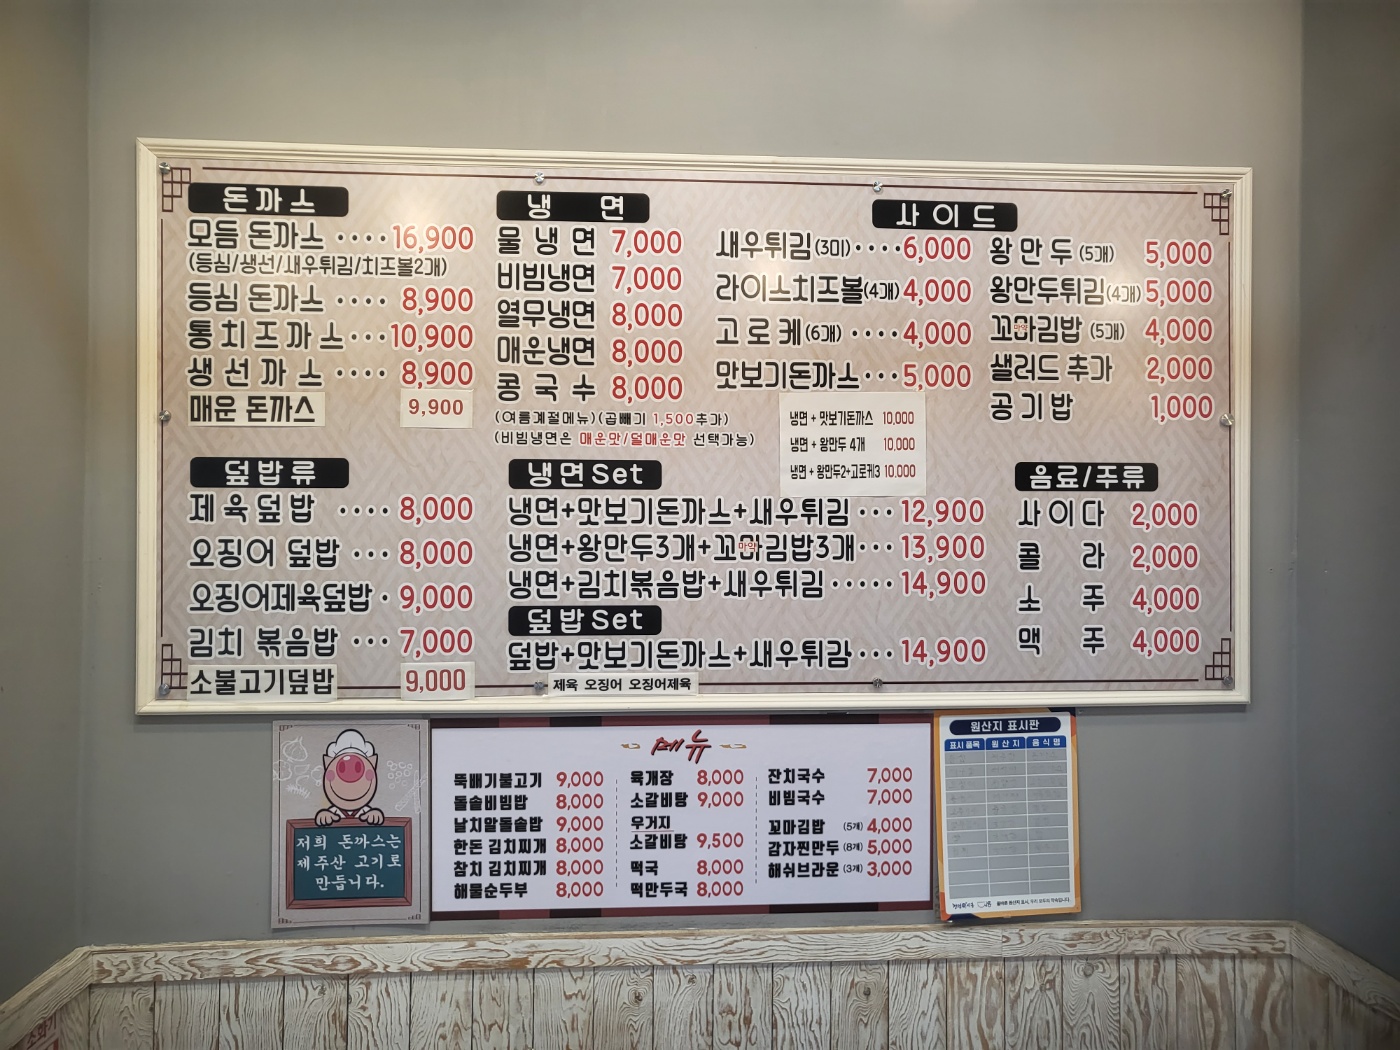 돈까스
모듬 돈까스 ···· 16,900
(등심/생선/새우튀김/치즈볼2개)
등심 돈까스 ···· 8,900
통치즈까스 ··· 10,900
생선까스 ···· 8,900
매운 돈까스 9,900
냉 면
물냉면 7,000
비빔냉면 7,000
열무냉면 8,000
매운냉면 8,000
콩국수 8,000
(여름계절메뉴)(곱빼기 1,500추가)
(비빔냉면은 매운맛/덜매운맛 선택가능)
사이드
새우튀김(3미) ···· 6,000
라이스치즈볼(4개) 4,000
고로케(6개) ···· 4,000
맛보기돈까스 ··· 5,000
왕만두 (5개) 5,000
왕만두튀김(4개) 5,000
꼬마김밥 (5개) 4,000
샐러드 추가 2,000
공기밥 1,000
냉면 + 맛보기돈까스 10,000
냉면 + 왕만두 4개 10,000
냉면 + 왕만두2+고로케3 10,000
덮밥류
제육덮밥 ···· 8,000
오징어 덮밥 ··· 8,000
오징어제육덮밥 · 9,000
김치 볶음밥 ··· 7,000
소불고기덮밥 9,000
냉면Set
냉면+맛보기돈까스+새우튀김 ··· 12,900
냉면+왕만두3개+꼬마김밥3개 ··· 13,900
냉면+김치볶음밥+새우튀김 ····· 14,900
덮밥Set
덮밥+맛보기돈까스+새우튀김 ··· 14,900
제육 오징어 오징어제육
음료/주류
사이다 2,000
콜 라 2,000
소 주 4,000
맥 주 4,000
저희 돈까스는
제주산 고기로
만듭니다.
메뉴
뚝배기불고기 9,000
돌솥비빔밥 8,000
날치알돌솥밥 9,000
한돈 김치찌개 8,000
참치 김치찌개 8,000
해물순두부 8,000
육개장 8,000
소갈비탕 9,000
우거지
소갈비탕 9,500
떡국 8,000
떡만두국 8,000
잔치국수 7,000
비빔국수 7,000
꼬마김밥 (5개) 4,000
감자찐만두 (8개) 5,000
해쉬브라운 (3개) 3,000
원산지 표시판
표시품목 원산지 음식명